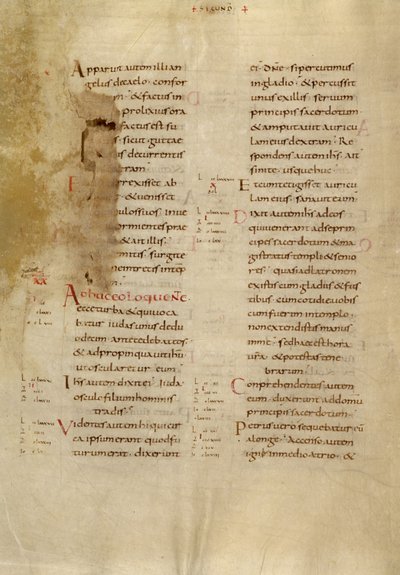 + SECUND +
Apparuit autem illi an
gelus de caelo confor
& factus in
prolixius ora
factus est su
sicut guttae
decurrentis
ram
rexisset ab
& uenisset
pulos suos inue
ormientes prae
& ait illis
mitis surgite
ne intretis intep
nem
Adhuc eo loquente
ecce turba & qui uoca
batur iudas unus de duo
decim antecedebat eos
& adpropinquauit ihu
ut oscularetur eum
Ihs autem dixit ei Iuda
osculo filium hominis
tradis
Videntes autem hi qui circ
ea ipsum erant quod fu
turum erat dixerunt
ei Dne si percutimus
in gladio & percussit
unus ex illis seruum
principis sacerdotum
& amputauit auricu
lam eius dextram Re
spondens autem ihs ait
sinite usque huc
Et cum tetigisset auricu
lam eius sanauit eum
Dixit autem ihs ad eos
qui uenerant ad se prin
cipes sacerdotum & ma
gistratus templi & senio
res quasi ad latronem
existis cum gladiis & fus
tibus cum cotidie uobis
cum fuerim in templo
non extendistis manus
in me sed haec est hora
ura & potestas tene
brarum
Conprehendentes autem
eum duxerunt ad domu
principis sacerdotum
Petrus uero sequebatur eu
a longe Accenso autem
igni in medio atrio &